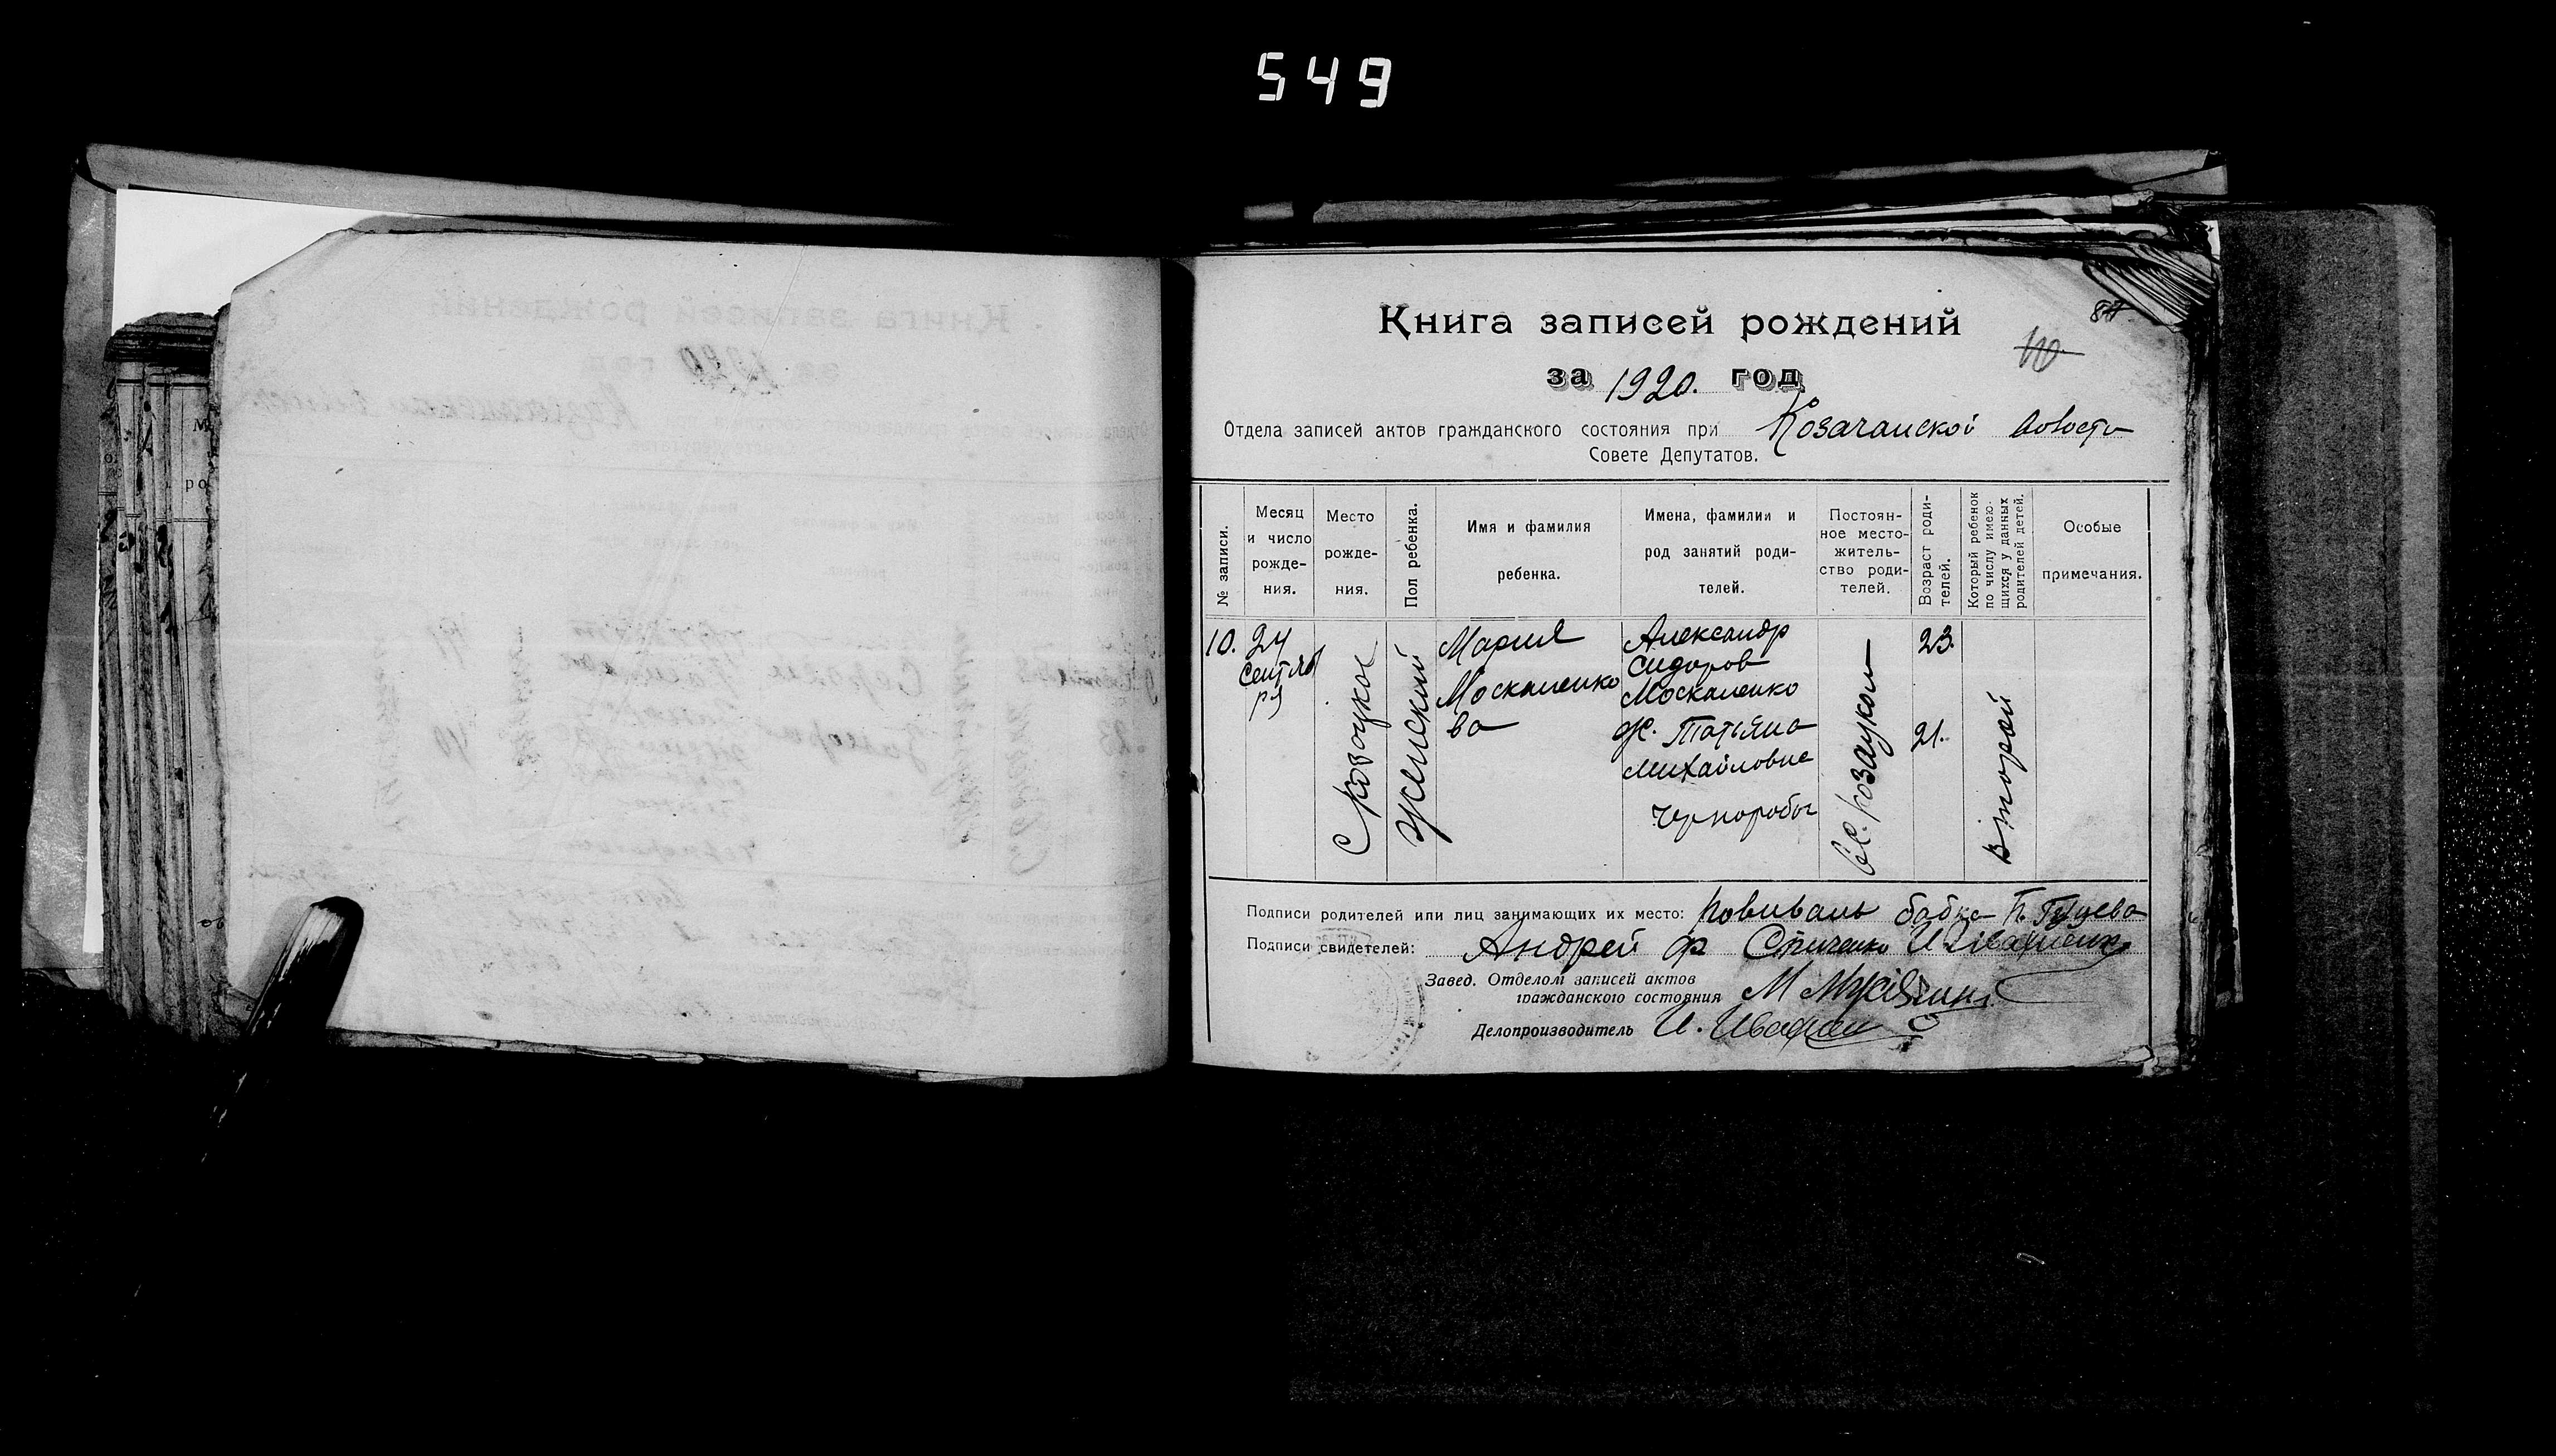 549
87
110
Книга записей рождений
за 1920. год
Отдела записей актов гражданского состояния при Козачанской волости
Совете Депутатов.
№ записи.
Месяц и число рожде-ния.
Место рожде-ния.
Пол ребенка.
Имя и фамилия ребенка.
Имена, фамилии и род занятий роди-телей.
Постоян-ное место-житель-ство роди-телей.
Возраст роди-телей.
Который ребенок по числу имею-щихся у данных родителей детей.
Особые примечания.
10.
24
Сентяб
ря
С Козацкое
женский
Мария
Москаленко
ва
Александр
Сидоров
Москаленко
ж. Татьяна
Михайловне
Чернороби
сс. Козацком
23.
21.
второй
Подписи родителей или лиц занимающих их место: Повиваль бабка П.
Подписи свидетелей: Андрей Ф
Завед. Отделом записей актов
гражданского состояния М
Делопроизводитель И.